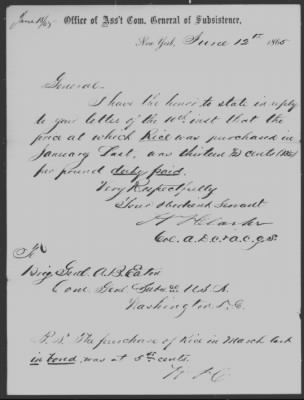 June 12/65
Office of Ass't Com. General of Subsistence,
New York, June 12th 1865
General
I have the honor to state in reply
to your letter of the inst that the
price at which Rice was purchased in
January last, was thirteen cents
per pound duty paid.
Very Respectfully
Your Obedient Servant
Clarke
Col. A.D.C. & A.C.G.S.
To
Brig Genl. A.B. Eaton
Com. Genl Subs. U.S.A.
Washington D.C.
P.S. The purchase of Rice in March last
in bond, was at cents.